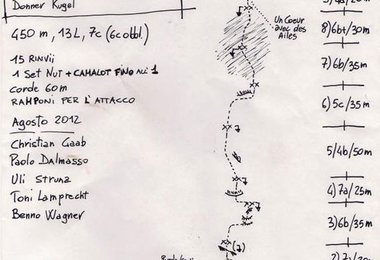 Donner Kugel
450 m, 13L, 7c (6c obbl.)
15 RINVII
1 SET NUT + CAMALOT FINO ALL' 1
CORDE 60m
RAMPONI PER L'ATTACCO
Agosto 2012
Christian Gaab
Paolo Dalmasso
Uli Strunz
Toni Lamprecht
Benno Wagner
Un Coeur
avec des
Ailes
8) 6b+/30m
7) 6b/35m
6) 5c/35m
5) 4b/50m
4) 7a/25m
3) 6b/35m
7
7
(7)